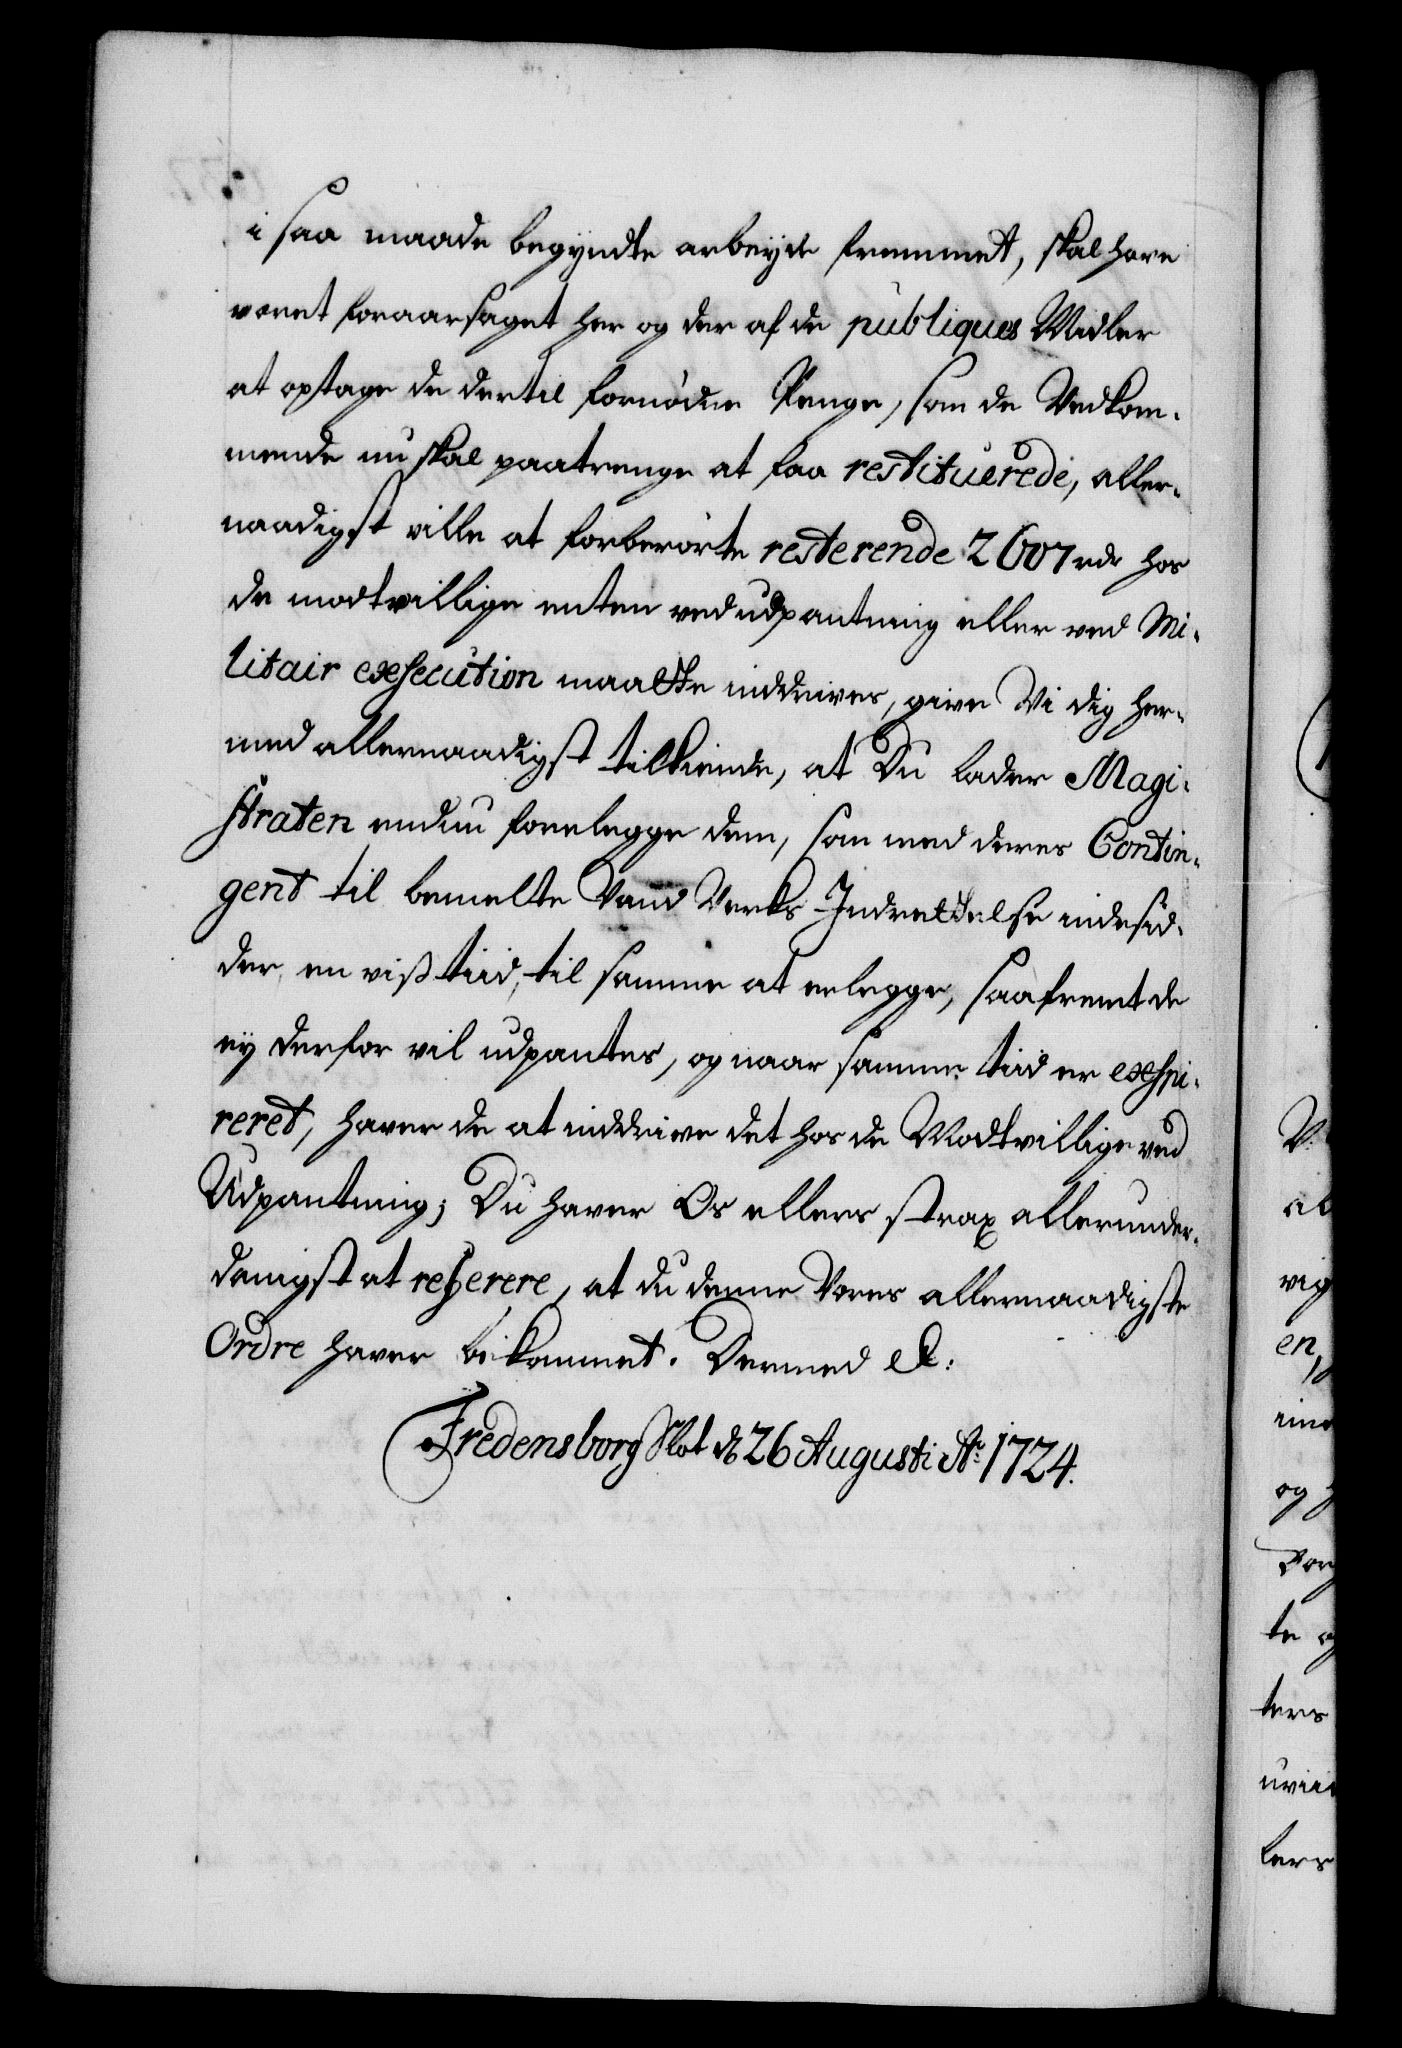 i saa maade begyndte arbeyde fremmet, skal have
været foraarsaget her og der af de publiques Midler
at optage de dertil fornödne Penge, som de Vedkom-
mende nu skal paatrenge at faa restituerede, aller-
naadigst ville at forberörte resterende 2607 rdr hos
de modtvillige enten ved udpantning eller ved Mi-
litair execution maatte inddrives, give Vi dig her-
med allernaadigst tilkiende, at Du lader Magi-
straten endnu forelegge dem, som med deres Contin-
gent til bemelte Vand Verks Indrettelse indesid-
der, en viss tiid, til samme at erlegge, saafremt de
ey derfor vil udpantes, og naar samme tiid er expi-
reret, haver de at inddrive det hos de Modtvillige ved
Udpantning; Du haver Os ellers strax allerunder-
danigst at referere, at du denne Vores allernaadigste
Ordre haver bekommet. Dermed &c:
Fredensborg Slot d 26 Augusti Ao 1724.
V
al
vig
en,
og
te
ters
lers